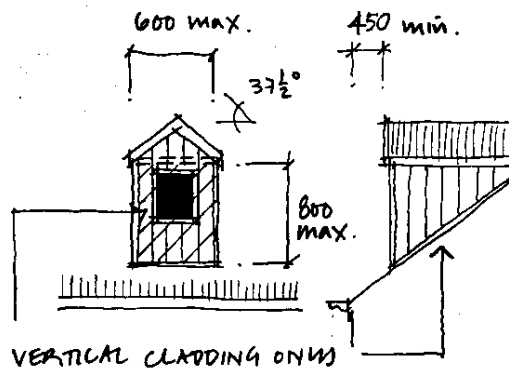 600 max.
450 min.
37½°
800
max.
VERTICAL CLADDING ONLY